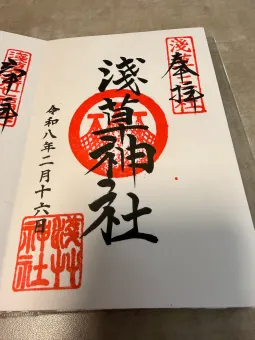 奉拝
淺草神社
令和八年二月十六日
淺草
神社